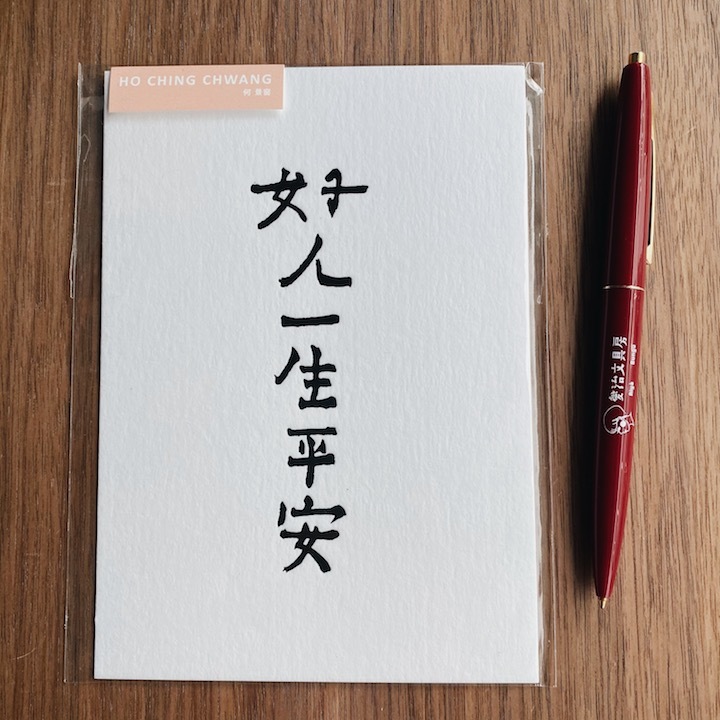 HO CHING CHWANG
好人一生平安
愛治文具房